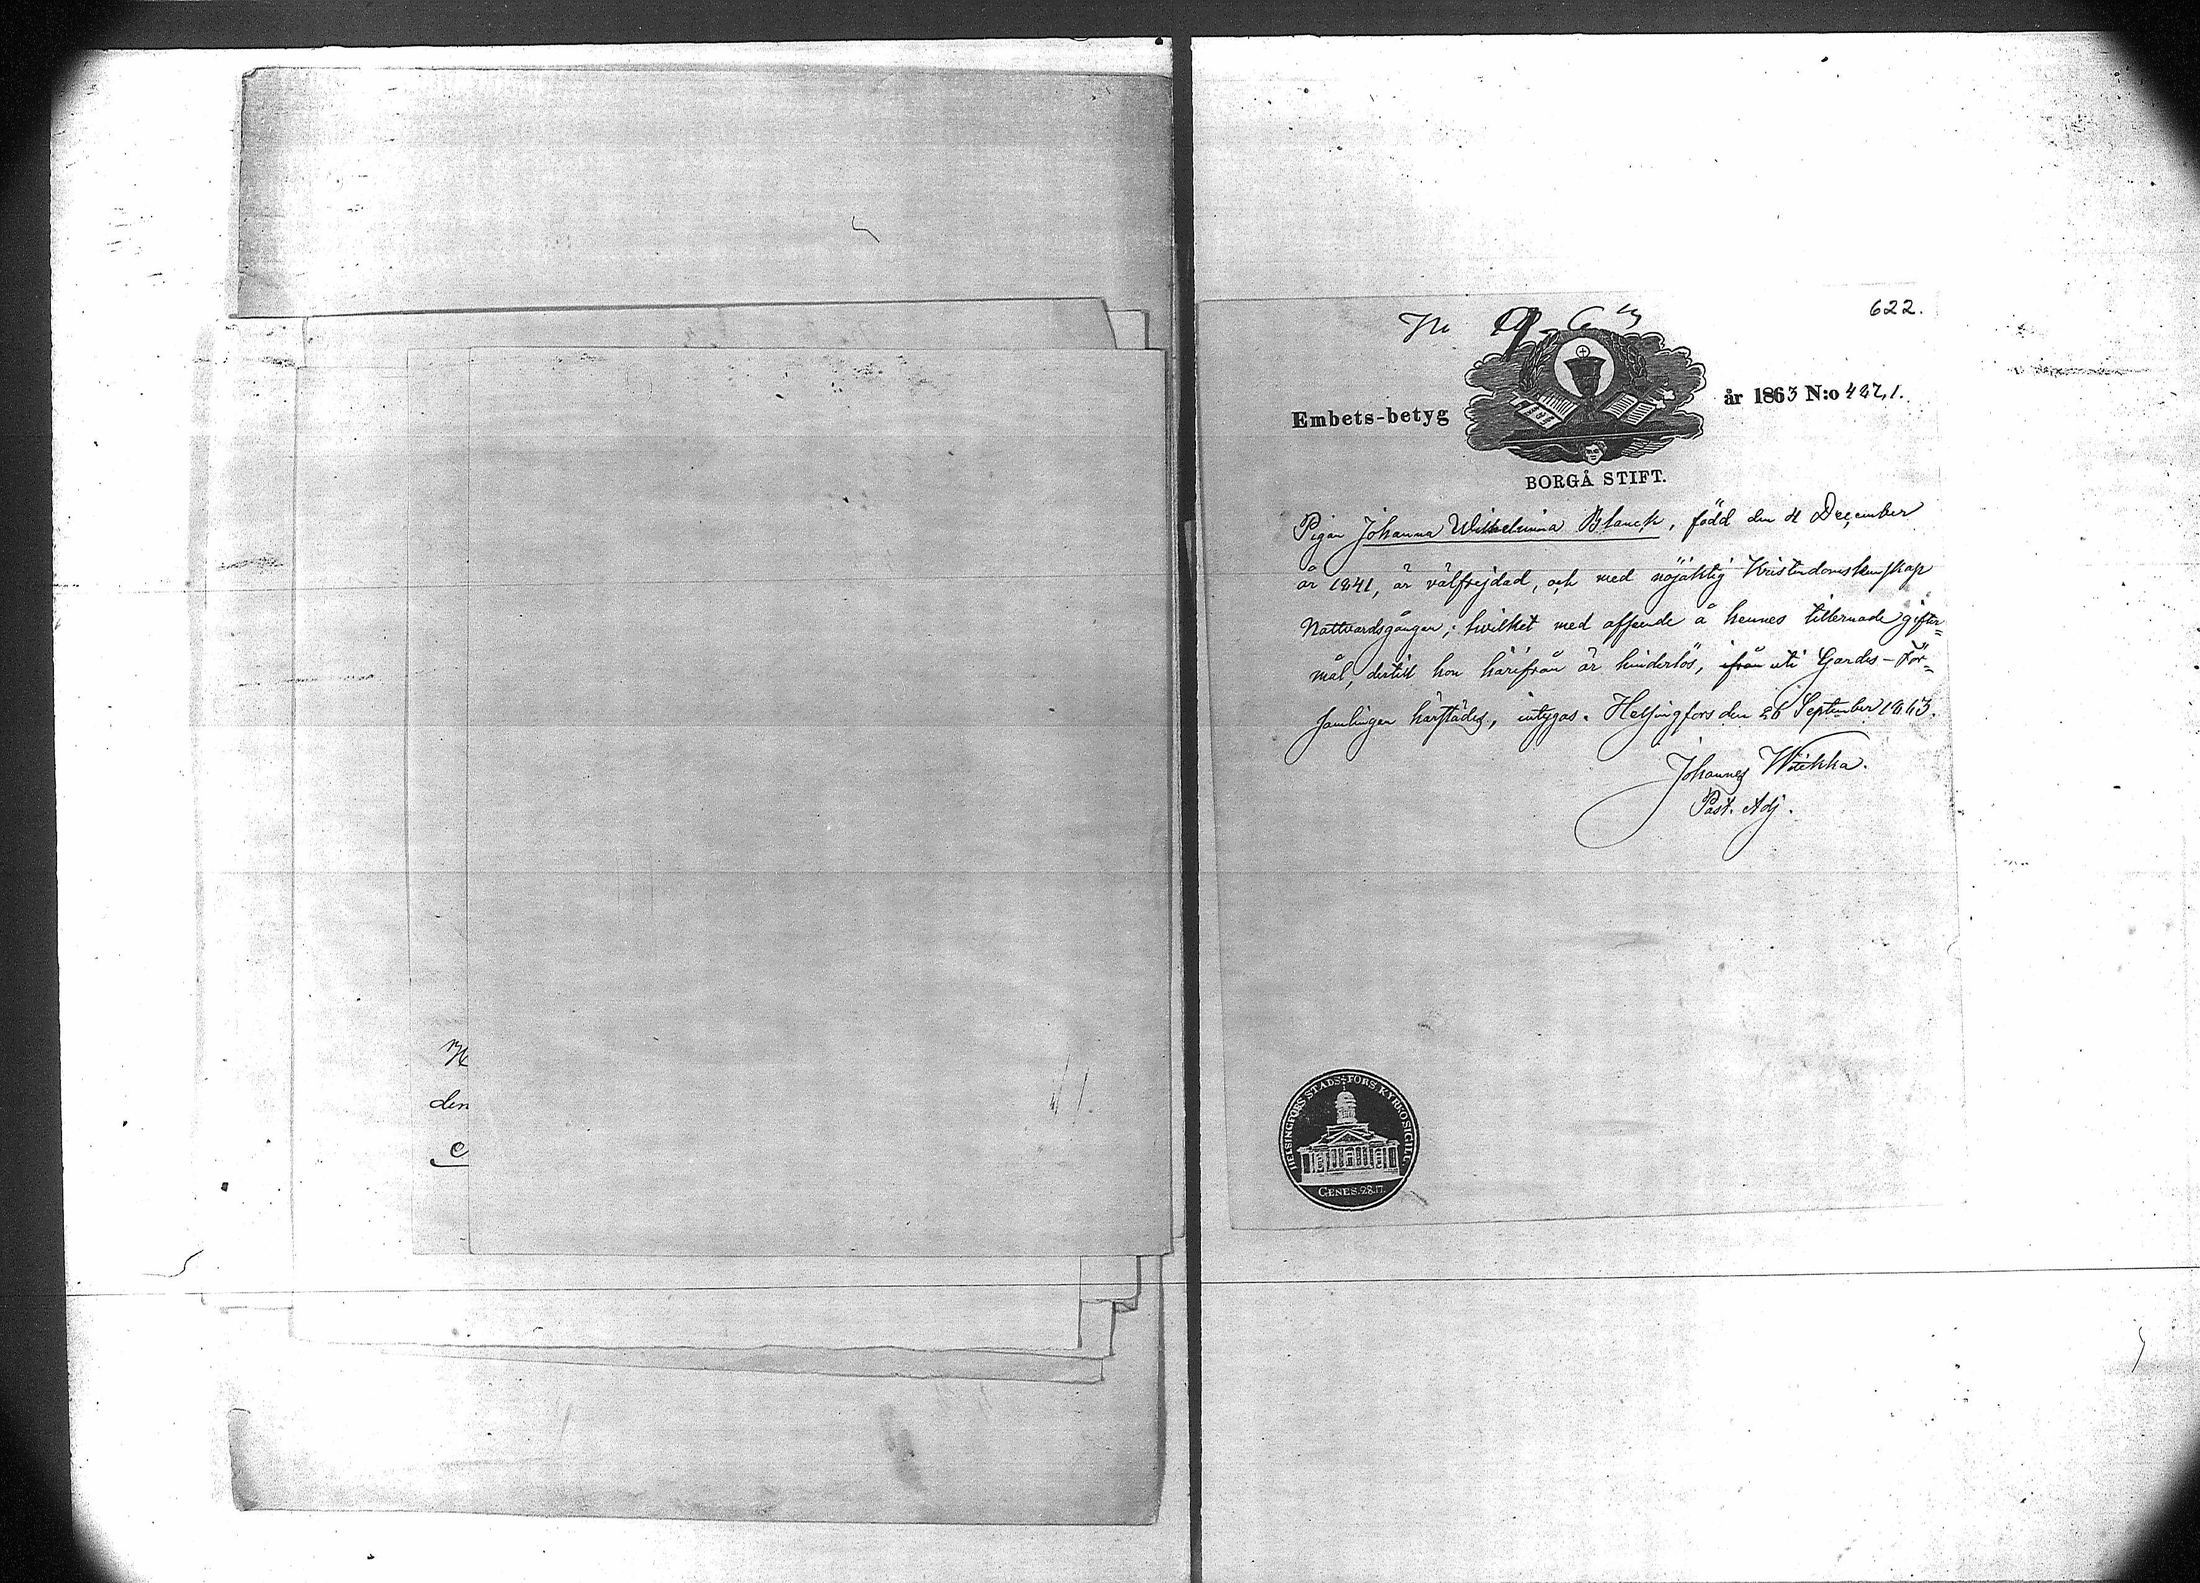 622.
No
Embets-betyg
år 1863 N:o
BORGÅ STIFT.
Pigan Johanna Wilhelmina Blanck, född den December
år 1841, är välfrejdad, och med nöjaktig Kristendomskunskap
Nattvardsgången; hvilket med afseende å hennes tillernade gifter=
mål, dertill hon härifrån är hinderlös, ifrån uti Gardes-För=
samlingen härstädes, intygas. Helsingfors den 26 September 1863.
Johannes Wiikka.
Past. Adj.
den
HELSINGFORS STADS-FÖRS. KYRKO SIGILL.
GENES. 28.17.